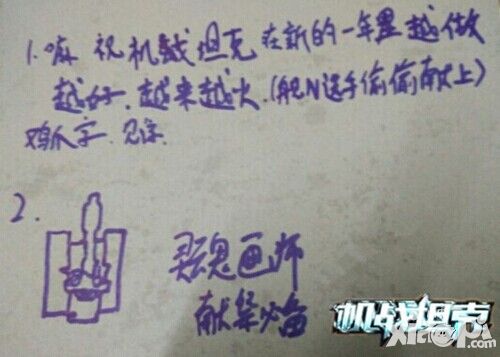 1. 嘛 祝机战坦克在新的一年里越做
越好、越来越火.(舵N选手偷偷献上)
鸡爪字.见谅.
2.
灵魂画师
献祭必备
机战坦克